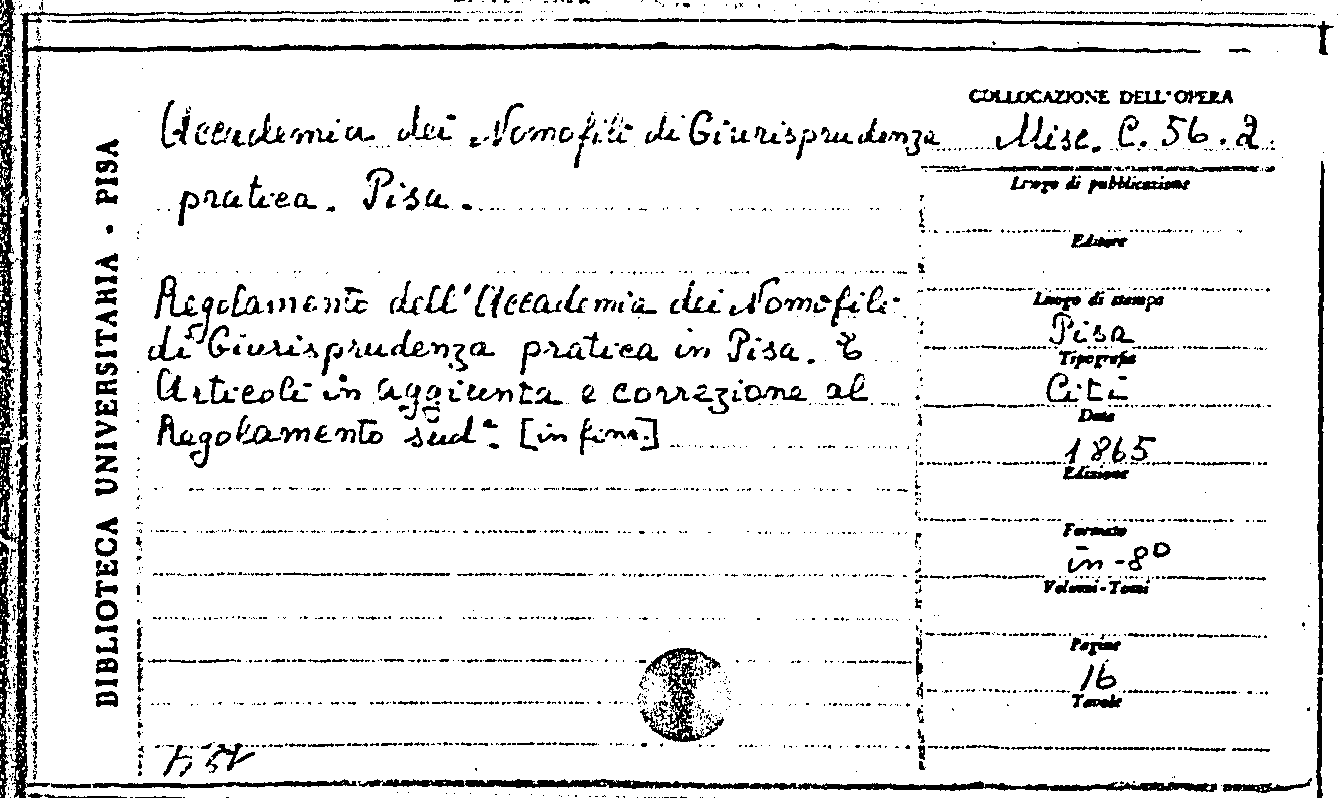 BIBLIOTECA UNIVERSITARIA · PISA
Accademia dei Nomofili di Giurisprudenza
pratica. Pisa.
Regolamento dell'Accademia dei Nomofili
di Giurisprudenza pratica in Pisa. E
Articoli in aggiunta e correzione al
Regolamento sudº. [in fine.]
COLLOCAZIONE DELL'OPERA
Misc. C. 56. 2.
Luogo di pubblicazione
Editore
Luogo di stampa
Pisa
Tipografia
Citi
Data
1865
Edizione
Formato
in-8º
Volumi-Tomi
Pagine
16
Tavole